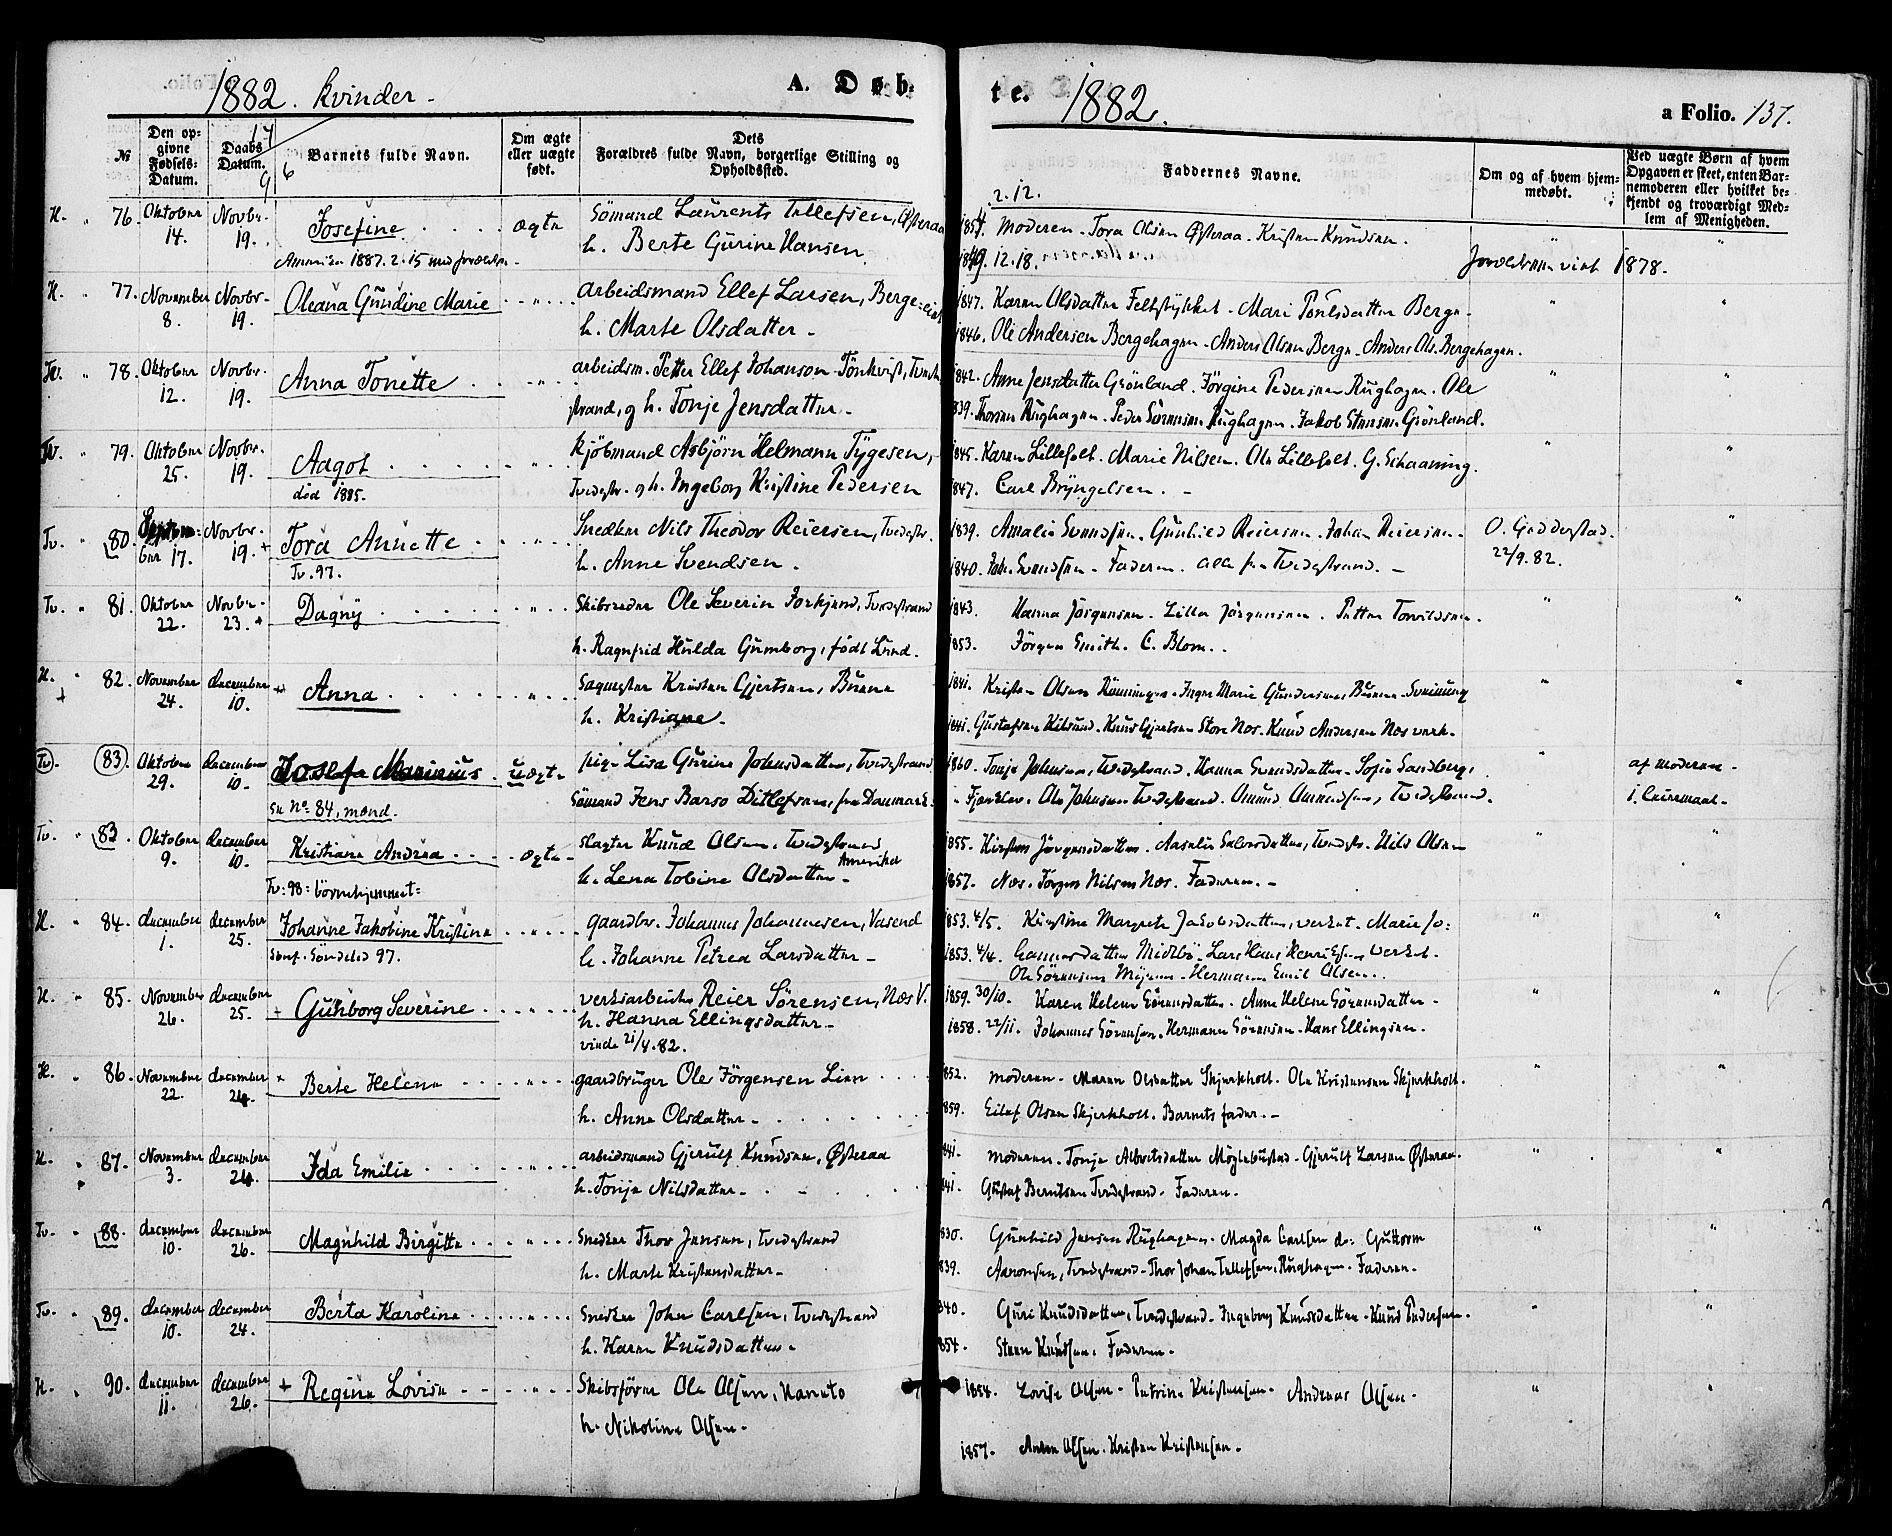 1882. Kvinder. A. Døbte. 1882. a Folio. 137.
№ Den opgivne Fødsels-Datum. Daabs Datum. Barnets fulde Navn. Om ægte eller uægte født. Dets Forældres fulde Navn, borgerlige Stilling og Opholdssted. Faddernes Navne. Om og af hvem hjemmedøbt. Ved uægte Børn af hvem Opgaven er skeet, enten Barnemoderen eller hvilket bekjendt og troværdigt Medlem af Menigheden.
17 9 6 2.12.
H. " 76. Oktober 14. Novbr. 19. Josefine ægte Sömand Laurents Tellefsen, Østeraa 1854. Moderen - Tora Olsen Østeraa - Kristen Knudsen. "
Amerika 1887. 2. 15 med forældre - h. Berte Gurine Hansen 1849. 12.18. Forældrene viet 1878.
H. " 77. November 8. Novbr. 19. Oleana Gundine Marie " Arbeidsmand Ellef Larsen, Berge 1847. Karen Olsdatter Feltstykket - Mari Poulsdatter Berge -
h. Marte Olsdatter - 1846. Ole Andersen Bergehagen - Anders Olsen Berge - Anders Ols. Bergehagen.
Tv. " 78. Oktober 12. Novbr. 19. Anna Tonette " arbeidsm. Petter Ellef Johanson Tönkvist, Tvede- 1842. Anne Jensdatter Grönland. Jörgine Pedersen Rughagen. Ole
strand, og h. Tonje Jensdatter - 1839. Thorsen Rughagen. Peder Sörensen Rughagen. Jakob Stensen Grönland.
Tv. " 79. Oktober 25. Novbr. 19. Aagot " Kjöbmand Asbjörn Helmann Tygesen, 1845. Karen Lillefolt. Marie Nilsen. Ole Lillefolt. G. Schaaning.
död 1885. Tvedestr. og h. Ingeborg Kristine Pedersen 1847. Carl Bryngelsen. -
Tv. " 80. September 17. Novbr. 19. Tora Annette " Snedker Nils Theodor Reiersen, Tvedestr. 1839. Amalie Svendsen. Gunhild Reiersen. Johan Reiersen - O. Godderstad.
Tv. 97. h. Anne Svendsen. 1840. Joh. Svendsen - Faderen. alle fra Tvedestrand. - 22/9. 82.
Tv. " 81. Oktober 22. Novbr. 23. Dagny " Skibsreder Ole Severin Forkjend, Tvedestrand 1843. Hanna Jörgensen. Lilla Jörgensen. Petter Torvildsen.
h. Ragnfrid Hulda Gumborg, födt Lund. 1853. Jörgen Smith. C. Blom.
H. 82. November 24. December 10. Anna " Sagmester Kristen Gjertsen, Buene 1841. Kristen Olsen Rönningen - Inger Marie Gundersen Buene - Svenung
h. Kristiane. 1841. Gustafsen Kilsund. Knud Gjertsen Store Næs. Knud Andersen Næs verk.
Tv. 83. Oktober 29. December 10. Josefa Marinius uægte pige Lisa Gurine Johnsdatter, Tvedestrand 1860. Tonje Johnsen, Tvedestrand. Hanna Svendsdatter - Sofie Sandberg, af moderen -
se No. 84, mænd. Sömand Jens Barso Ditlefsen, fra Danmark. Ole Johnsen Tvedestrand. Amund Amundsen, Tvedestrand.
Tv. " 83. Oktober 9. December 10. Kristiane Andrea ægte Slagter Knud Olsen, Tvedestrand 1855. Kirsten Jörgensdatter. Aaselie Salvesdatter, Tvedestr. Nils Olsen
Tv: 98 - börnehjemmet: h. Lena Tobine Olsdatter - Amerika 1857. Næs. Jörgen Nilsen Næs. Faderen. -
H. " 84. December 1. December 25. Johanne Jakobine Kristine " gaardbr. Johannes Johannesen, Vasend 1853. 4/5. Kirstine Margrete Jakobsdatter, verket. Marie Jo:
konf. Söndeled 97. h. Johanne Petrea Larsdatter - 1853. 4/6. hannesdatter Midtbö. Lars Hans Henriksen Verket.
Ole Sörensen Myren - Hermann Emil Olsen.
H. " 85. November 26. December 25. Gunborg Severine " verksarbeider Reier Sörensen, Næs V. 1859. 30/10. Karen Helene Sörensdatter. Anne Helene Sörensdatter -
h. Hanna Ellingsdatter - 1858. 22/11. Johannes Sörensen. Hermann Sörensen - Hans Ellingsen.
viede 21/4. 82.
H. " 86. November 22. December 24. Berte Helene " gaardbruger Ole Jörgensen Lien 1852. moderen - Maren Olsdatter Skjerkholt. Ole Kristensen Skjerkholt.
h. Anne Olsdatter - 1859. Eilef Olsen Skjerkholt. Barnets fader. -
H. " 87. November 3. December 24. Ida Emilie " arbeidsmand Gjerulf Knudsen, Østeraa 1841. Moderen - Tonje Albretsdatter Möglebustad - Gjerulf Larsen Østeraa.
h. Tonje Nilsdatter - 1841. Gustaf Berntsen Tvedestrand - Faderen.
Tv. " 88. December 10. December 26. Magnhild Birgitte " Snedker Thor Jensen, Tvedestrand 1830. Gunhild Jensen Rughagen. Magda Carlsen do: Guttorm
h. Marte Kristensdatter - 1839. Aaronsen, Tvedestrand - Thor Johan Tellefsen, Rughagen. Faderen.
Tv. " 89. December 10. December 24. Berta Karoline " Snedker John Carlsen, Tvedestrand 1840. Guri Knudsdatter, Tvedestrand - Ingeborg Knudsdatter - Knud Pedersen.
h. Karen Knudsdatter - 1854. Steen Knudsen. Faderen -
H. " 90. December 11. December 26. Regine Lovise " Skibsförer Ole Olsen, Nanuto 1854. Lovise Olsen - Petrine Kristensen - Andreas Olsen -
h. Nikoline Olsen - 1857. Anton Olsen. Kristen Kristensen -